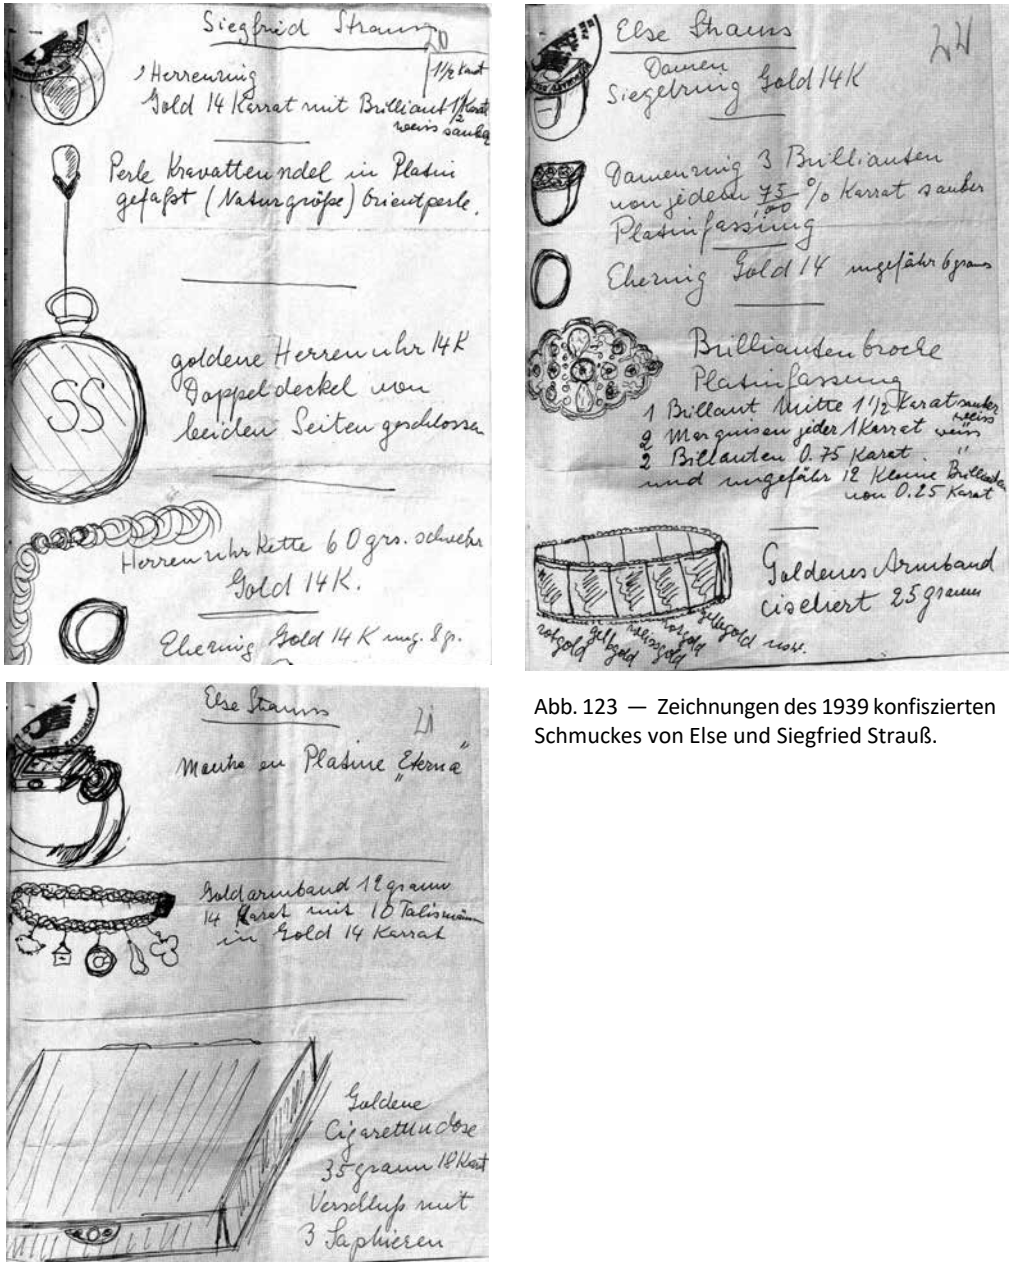 Siegfried Strauss
20
1 Herrenring
1 1/2 Karat
Gold 14 Karrat mit Brilliant 1 1/2 Karat
weiss sauber
Perle Kravattenndel in Platin
gefaßt (Naturgröße) Orientperle.
goldene Herrenuhr 14K
Doppeldeckel von
beiden Seiten geschlossen
SS
Herrenuhrkette 60 grs. schwehr
Gold 14K.
Ehering Gold 14K ung. 8 gr.
Else Strauss
Damen
Siegelring Gold 14K
Damenring 3 Brillianten
von jedem 75/100 % Karrat sauber
Platinfassung
Ehering Gold 14 ungefähr 6 grams
Brilliantenbroche
Platinfassung
1 Brillant Mitte 1 1/2 Karat sauber
weiss
2 Marquisen jeder 1 Karrat weiss
2 Billanten 0.75 Karat. "
und ungefähr 12 Kleine Brillianten
von 0.25 Karat
Goldenes Armband
ciseliert 25 gramm
rotgold gelbgold weissgold rotgold gelbgold usw.
Else Strauss
21
en Platine "Eterna"
Goldarmband 12 gramm
14 Karat mit 10 Talismänn
in Gold 14 Karrat
Goldene
Cigarettendose
35 gramm 18 Karat
Verschluß mit
3 Saphieren
Abb. 123 — Zeichnungen des 1939 konfiszierten
Schmuckes von Else und Siegfried Strauß.